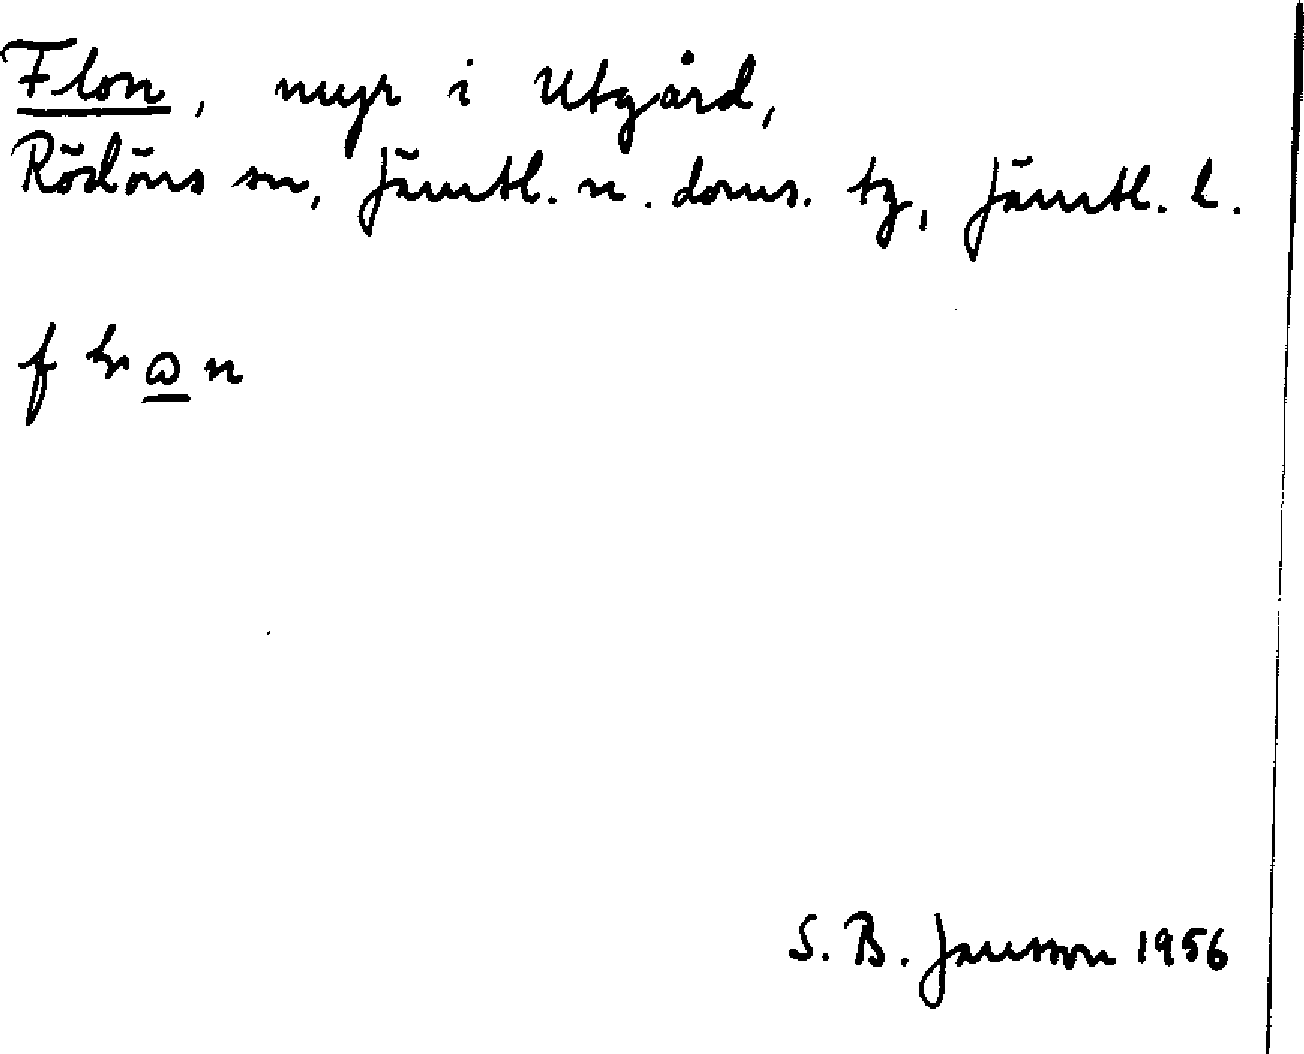 Flon, myr i Utgård,
Rödöns sn, Jämtl. n. doms. tg, Jämtl. l.
S. B. Jansson 1956